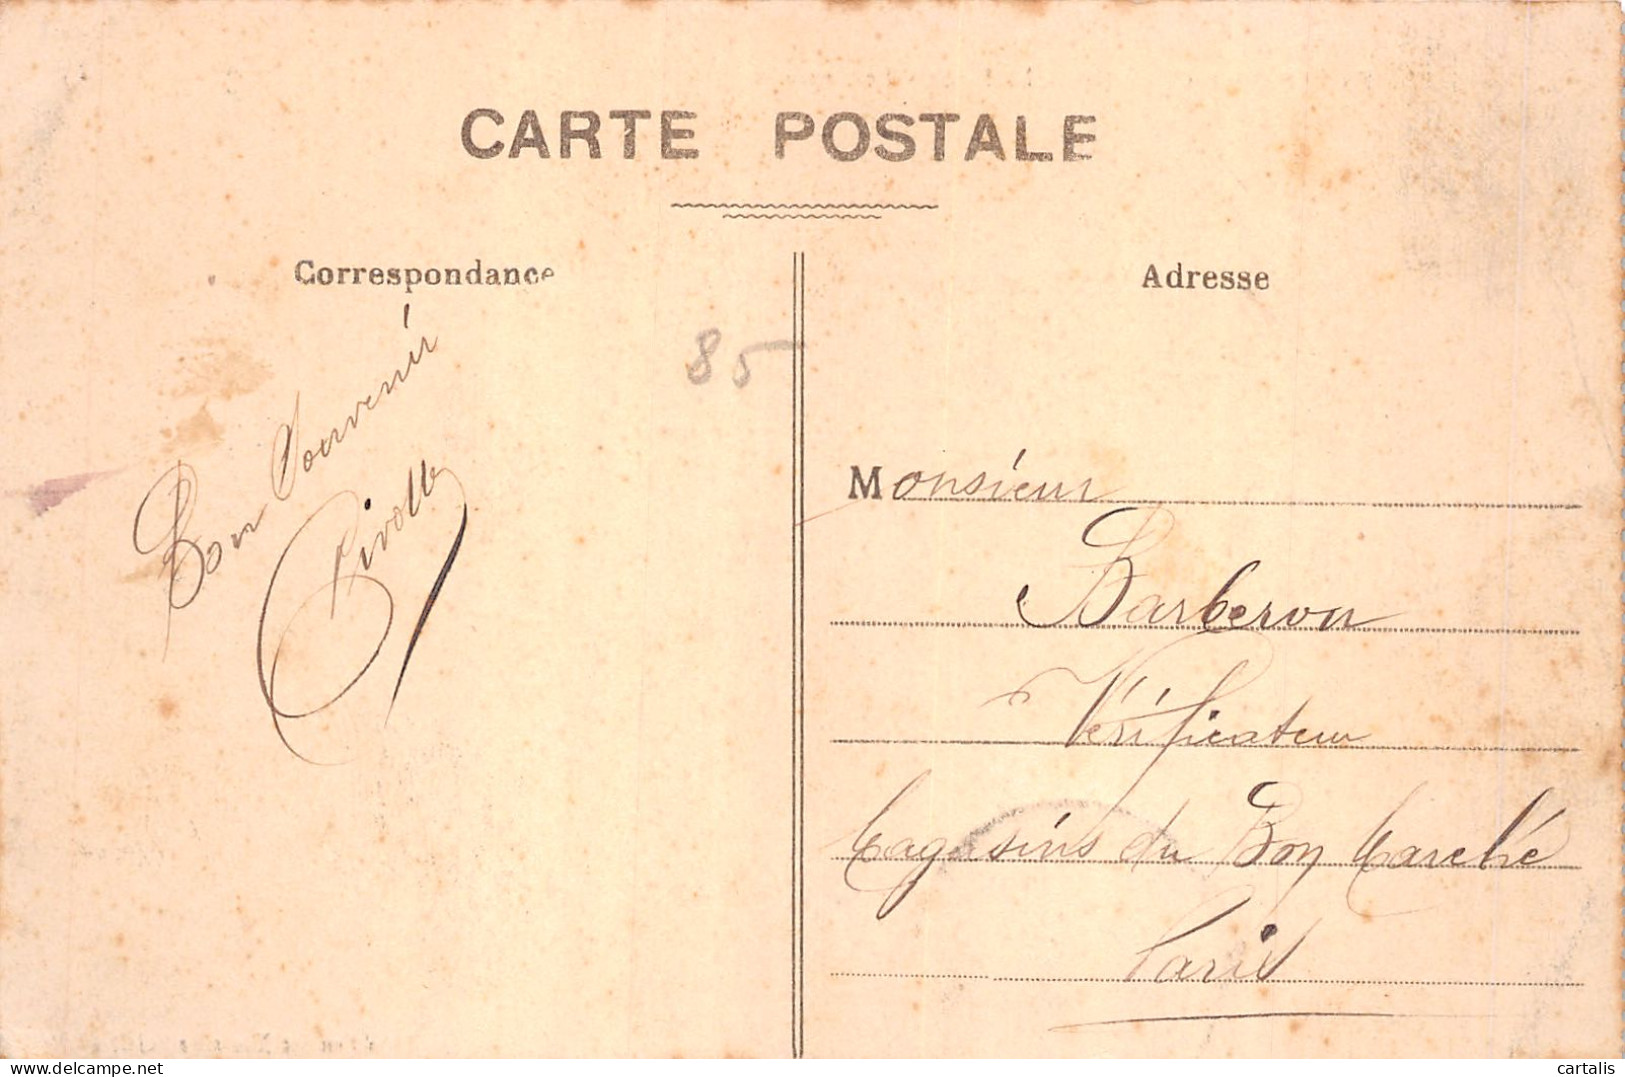 CARTE POSTALE
Correspondance
Adresse
85
Bon Souvenir
Monsieur
Barberon
Vérificateur
Magasins du Bon Marché
Paris
delcampe.net
cartalis